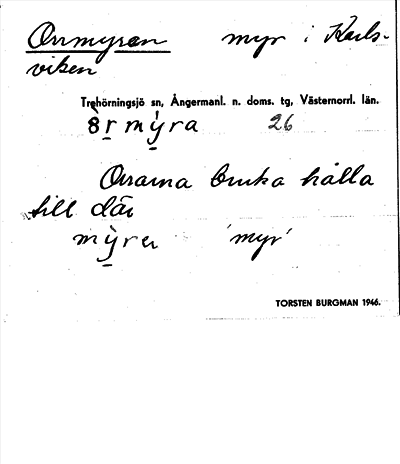 Orrmyran myr i Karls-
viken
Trehörningsjö sn, Ångermanl. n. doms. tg, Västernorrl. län.
8̀r m ý ra 26
Orrarna bruka hålla
till där
my̆ra 'myr'
TORSTEN BURGMAN 1946.